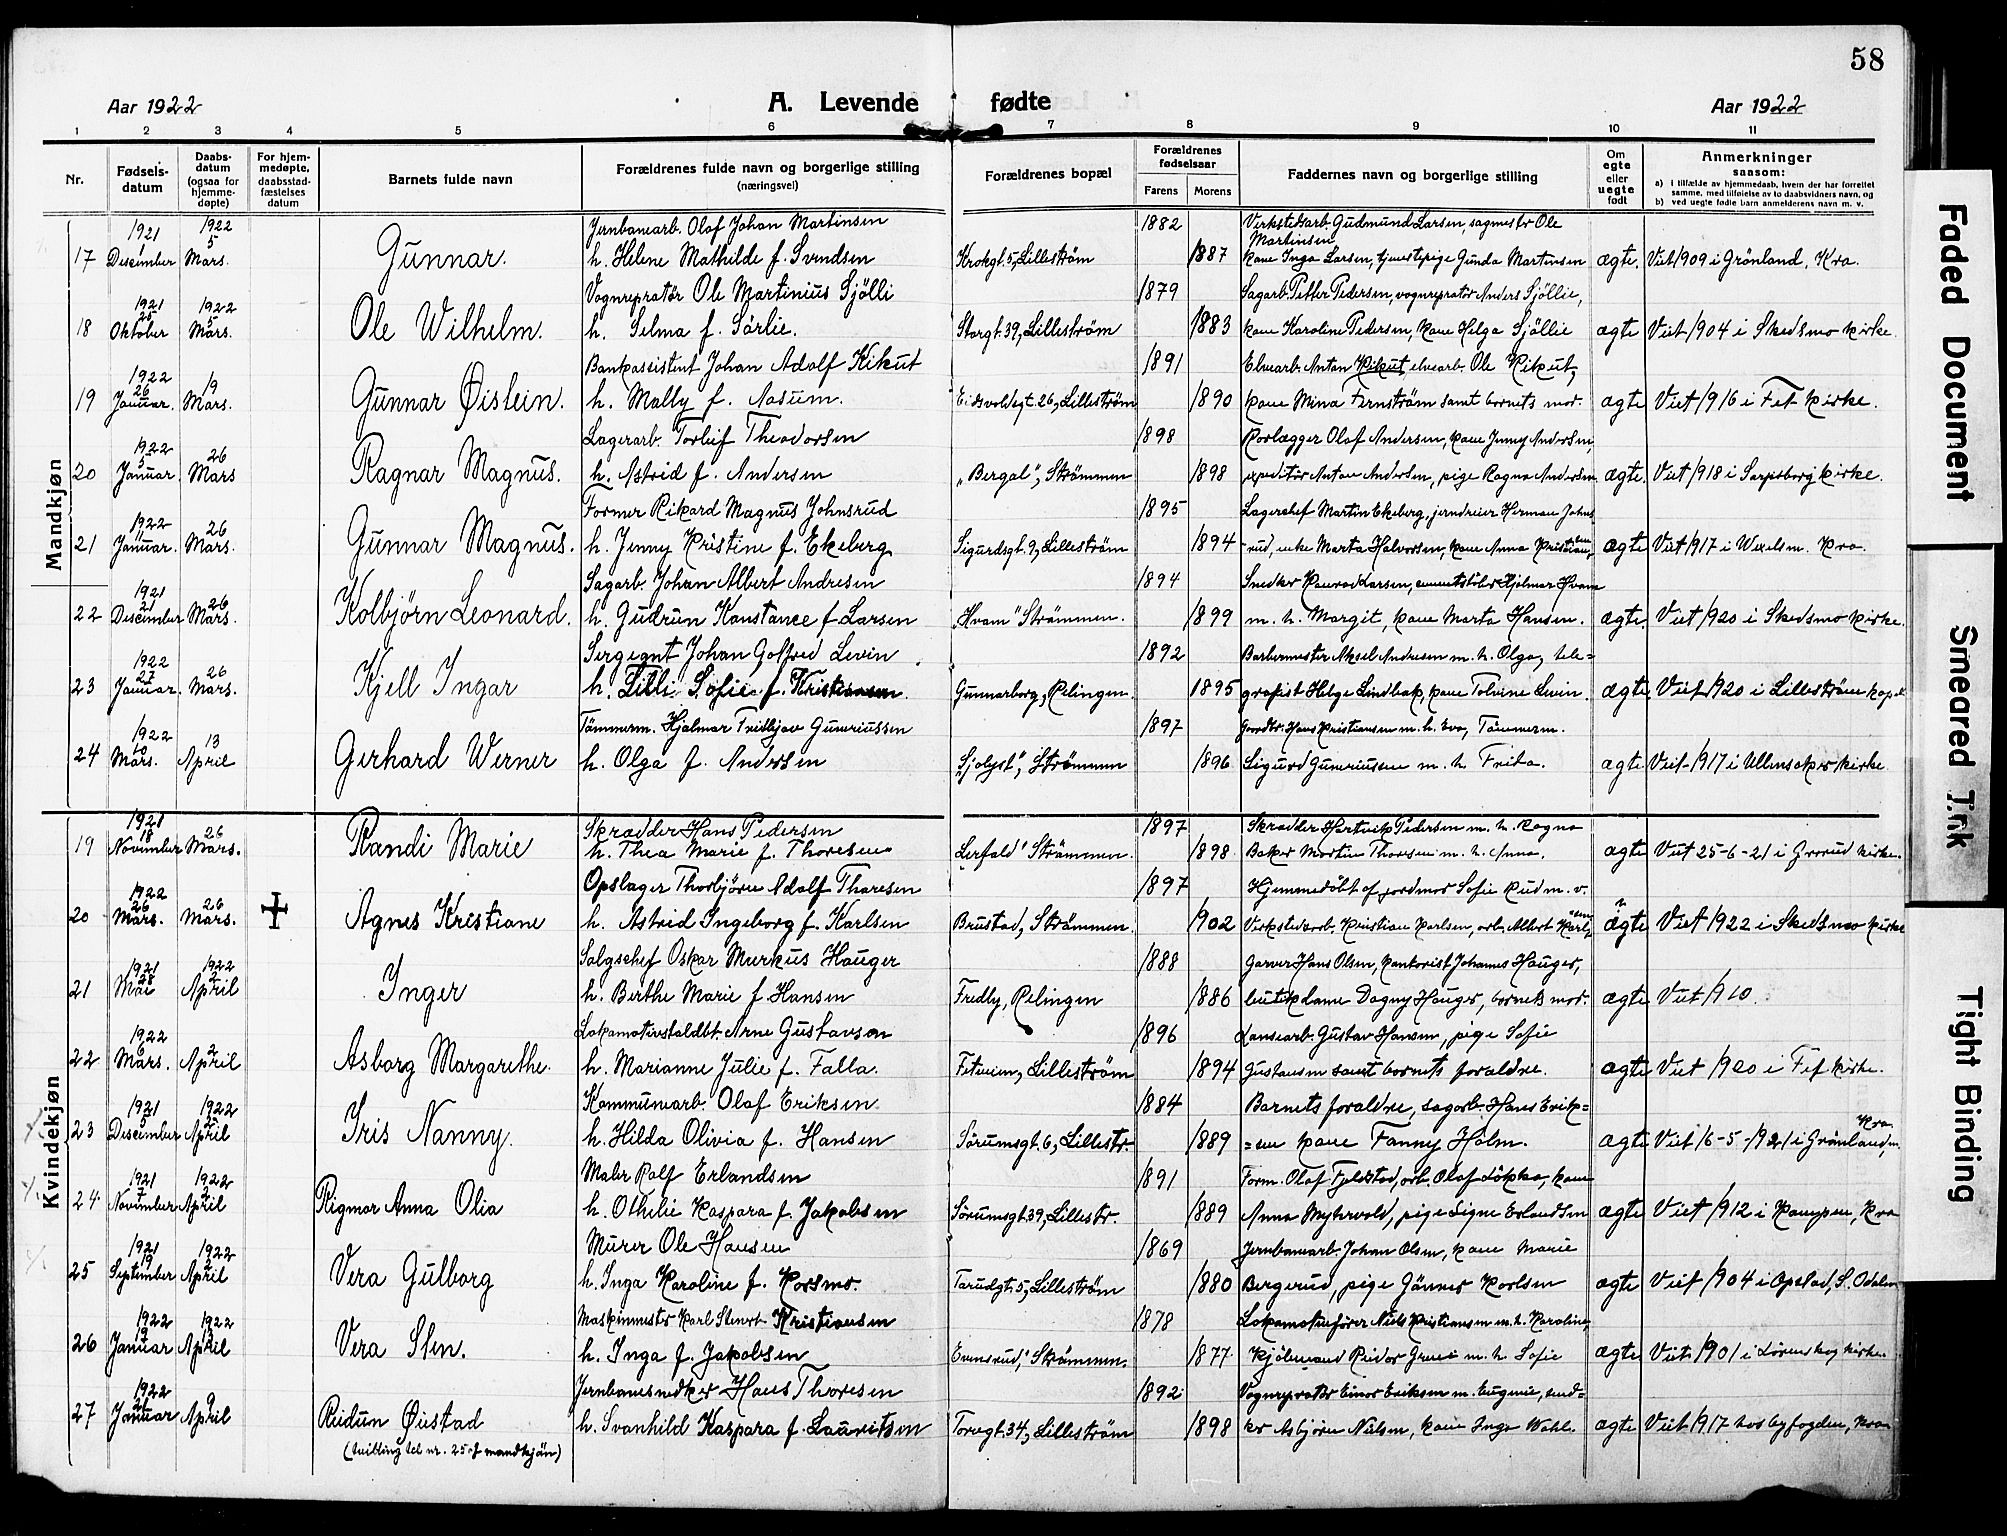 58
Aar 1922
A. Levende fødte
Aar 1922
1 2 3 4 5 6 7 8 9 10 11
Nr.
Fødsels-
datum
Daabs-
datum
(ogsaa for
hjemme-
døpte)
For hjem-
medøpte,
daabsstad-
fæstelses
datum
Barnets fulde navn
Forældrenes fulde navn og borgerlige stilling
(næringsvei)
Forældrenes bopæl
Forældrenes
fødselsaar
Farens Morens
Faddernes navn og borgerlige stilling
Om
egte
eller
uegte
født
Anmerkninger
saasom:
a) i tilfælde av hjemmedaab, hvem der har forrettet
samme, med tilføielse av to daabsvidners navn, og
b) ved uegte fødte barn anmelderens navn m. v.
Mandkjøn
1921 1922 Jernbanearb. Olaf Johan Martinsen 1882 Verkstedsarb. Gudmund Larsen, sagmester Ole
Martinsen
17 1 Desember 5 Mars. Gunnar. h. Helene Mathilde f. Svendsen Krokgt. 5, Lillestrøm 1887 kone Inga Larsen, tjenestepige Gunda Martinsen ægte. Viet 1909 i Grønland, Kra.
1921 1922 Vognreparatør Ole Martinius Sjölli 1879 Sagarb. Petter Pedersen, vognreparatør Anders Sjöllie,
18 25 Oktober 5 Mars. Ole Wilhelm. h. Selma f. Sørlie. Storgt. 39, Lillestrøm 1883 kone Karoline Pedersen, kone Helga Sjöllie ægte Viet 1904 i Skedsmo kirke.
1922 Bankassistent Johan Adolf Kikut 1891 Elvearb. Anton Kikut, elvearb. Ole Kikut,
19 26 Januar. 19 Mars. Gunnar Øistein. h. Mally f. Aasum. Eidsvoldsgt. 26, Lillestrøm 1890 kone Mina Fernstrøm samt barnets mor. ægte Viet 1916 i Fet kirke.
1922 Lagerarb. Torleif Theodorsen 1898 Rorlægger Olaf Andersen, kone Jenny Andersen,
20 5 Januar. 26 Mars Ragnar Magnus. h. Astrid f. Andersen "Bergal", Strømmen 1898 expeditør Anton Andersen, pige Ragna Andersen ægte. Viet 1918 i Sarpsborg kirke.
1922 Former Rikard Magnus Johnsrud 1895 Lagerchef Martin Ekeberg, jerndreier Herman Johns
21 11 Januar. 26 Mars. Gunnar Magnus. h. Jenny Kristine f. Ekeberg Sigurdsgt. 9, Lillestrøm 1894 -rud, enke Marta Halvorsen, kone Anna Kristiansen, ægte Viet 1917 i Wexels m. Kra.
1921 Sagarb. Johan Albert Andresen 1894 Snedker Konrad Larsen, cementstöber Hjalmar Hvam
22 21 Desember 26 Mars. Kolbjörn Leonard. h. Gudrun Konstance f Larsen "Hvam" Strømmen. 1899 m. h. Margit, kone Marta Hansen. ægte. Viet 1920 i Skedsmo kirke.
1922 Sergeant Johan Golfred Levin 1892 Barbermester Aksel Andresen m. h. Olga, tele=
23 27 Januar. 26 Mars. Kjell Ingar h. Lilli Sofie f. Kristiansen. Gunnarborg, Relingen. 1895 grafist Helge Lindbak, kone Tolvine Levin. ægte. Viet 1920 i Lillestrøm kapel
1922 Tömmerm. Hjalmar Fridtjov Guneriussen 1897 Gaardbr. Hans Kristiansen m. h. Eva, Tömmerm.
24 10 Mars. 13 April Gerhard Werner h. Olga f. Andersen "Sjolyst", Strømmen 1896 Sigurd Gunriussen m. h. Frida. ægte Viet 1917 i Ullensaker kirke.
Kvindekjøn
1921 Skrædder Hans Pedersen 1897 Skrædder Hartvik Pedersen m. h. Ragna
19 18 November 26 Mars. Randi Marie h. Thea Marie f. Thoresen Lerfald" Strømmen. 1898. Baker Morten Thoresen m. h. Anna. ægte Viet 25-6-21 i Grorud kirke.
1922 Opslager Thorbjörn Adolf Thoresen 1897 Hjemmedöbt af jordmor Sofie Rud m. v.
20 26 Mars. 26 Mars. Agnes Kristiane h. Astrid Ingeborg f. Karlsen Brustad, Strømmen. 1902 Verkstedarb. Kristian Karlsen, arb. Albert Karlsen ægte Viet 1922 i Skedsmo kirke
1921 1922 Salgschef Oskar Markus Hauger 1888 Garver Hans Olsen, kontorist Johannes Hauger,
21 28 Mai 2 April Inger h. Berthe Marie f Hansen Fredly, Relingen 1886 butikdame Dagny Hauger, barnets mor. ægte Viet 1910.
1922 Lokomotivstaldbt. Arne Gustavson 1896 Lansearb. Gustav Hansen, pige Sofie
22 6 Mars. 2 April Asborg Margarethe. h. Marianne Julie f. Falla. Fetveien, Lillestrøm 1894 Gustavsen samt barnets foraldre. ægte Viet 1920 i Fet kirke.
1921 1922 Kommunearb. Olaf Eriksen 1884 Barnets foraldre, sagarb. Hans Erik=
23 5 Desember 2 April Iris Nanny. h. Hilda Olivia f. Hansen Sørumsgt. 6, Lillestr. 1889 =sen kone Fanny Holm. ægte Viet 16-5-1921 i Grønland m. Kra.
1921 1922 Maler Ralf Erlandsen 1891 Form. Olaf Fjeldstad, arb. Olaf Lökka, kone
24. 7 November 2 April Rigmor Anna Olia h. Othelie Kaspara f. Jakobsen Sørumsgt. 39, Lillestr. 1889 Anna Myhrvold, pige Signe Erlandsen ægte Viet 1912 i Kampen, Kra
1921 1922 Murer Ole Hansen 1869 Jernbanearb. Johan Olsen, kone Marie
25 19 September 2 April Vera Gulborg h. Inga Karoline f. Korsmo. Tærudgt. 5, Lillestrøm 1880 Bergerud, pige Gönner Karlsen ægte Viet 1904 i Opstad, S. Odalen
1922 1922 Maskinmester Karl Stenort Kristiansen 1878 Lokomotivfører Niels Kristiansen m. h. Karoline,
26 19 Januar 13 April Vera Sten. h. Inga f. Jakobsen Evensrud," Strømmen. 1877. Kjöbmand Reidar m. h. Sofie ægte Viet 1901 i Lørenskog kirke.
1922 Jernbanesnedker Hans Thoresen 1892. Vognreparatør Einar Eriksen m. Eugenie, sned=
27 21 Januar 9 April Reidun Øistad h. Svanhild Kaspara f. Lauritsen Torvgt. 34, Lillestrøm 1898 ker Asbjörn Nielsen, kone Inga Wahl. ægte Viet 1917 hos byfogden, Kra
(tvilling til nr. 25 af mandkjøn)
Faded Document
Smeared Ink
Tight Binding